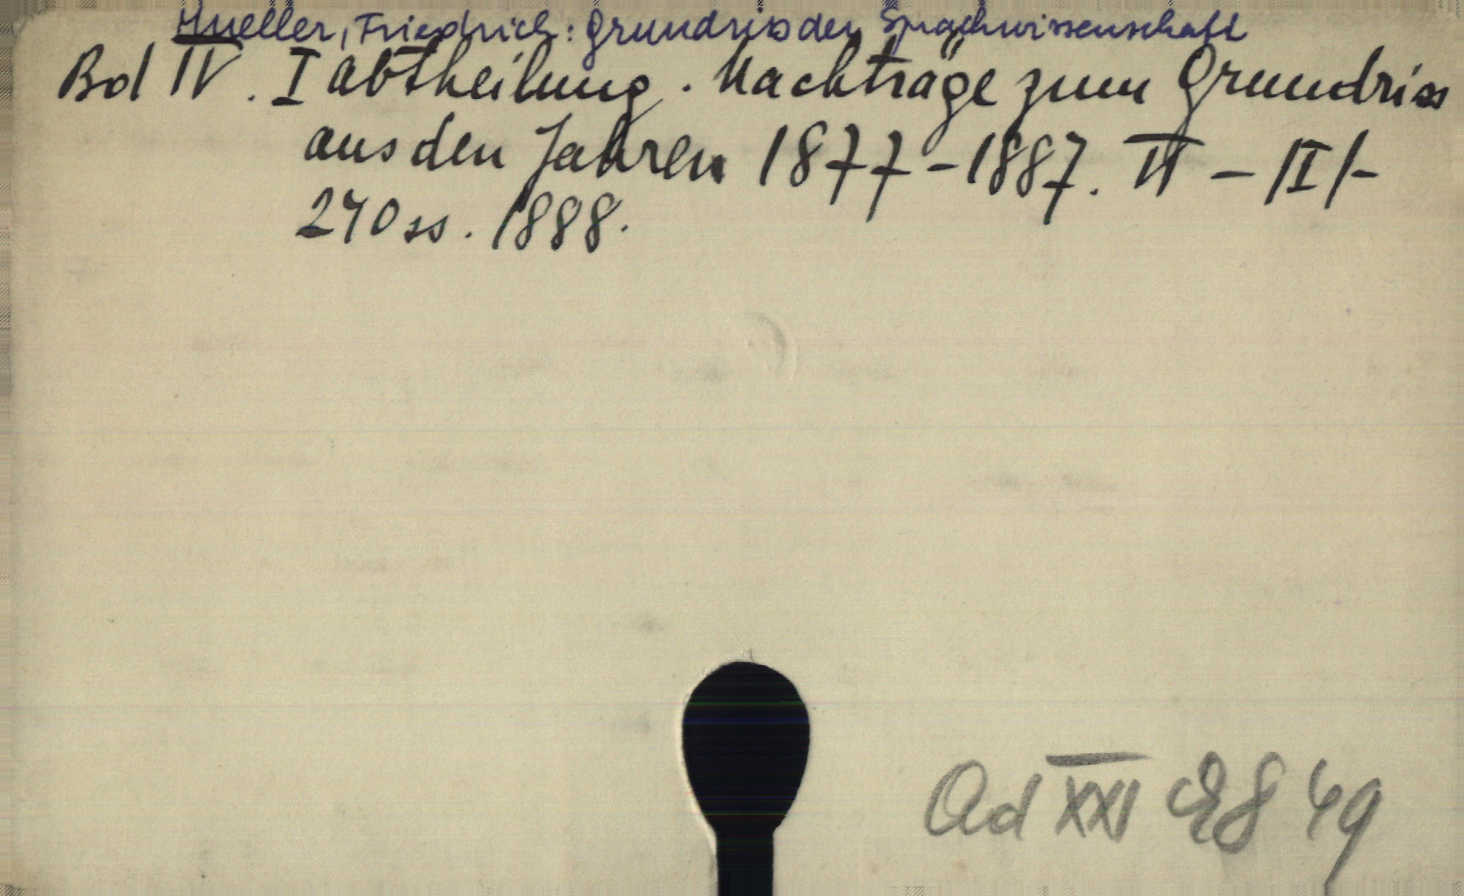 Mueller, Friedrich: Grundriss der Sprachwissenschaft
Bd IV. I abtheilung. Nachträge zum Grundriss
aus den Jahren 1877-1887. II - /I/-
240 ss. 1888.
Ad XXI